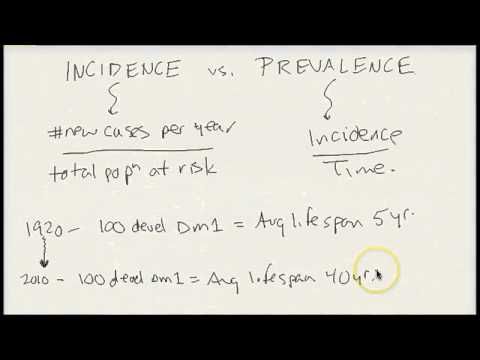 INCIDENCE vs. PREVALENCE
#new cases per year
total popⁿ at risk
Incidence
Time.
1920 - 100 devel Dm1 = Avg lifespan 5yr.
2010 - 100 devel Dm1 = Avg lifespan 40yr.